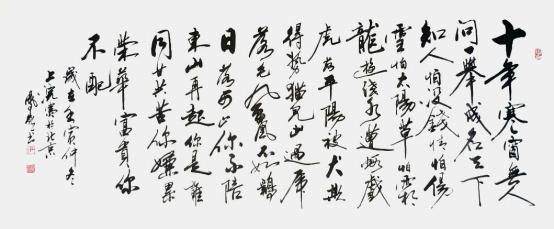 十年寒窗无人
问一举成名天下
知人怕没钱情怕伤
雪怕太阳草怕霜
龙游浅水遭虾戏
虎落平阳被犬欺
得势猫儿山过虎
落毛凤凰不如鸡
日落西山你不陪
东山再起你是谁
同甘共苦你嫌累
荣华富贵你
不配
岁在壬寅仲冬
上寒书于北京